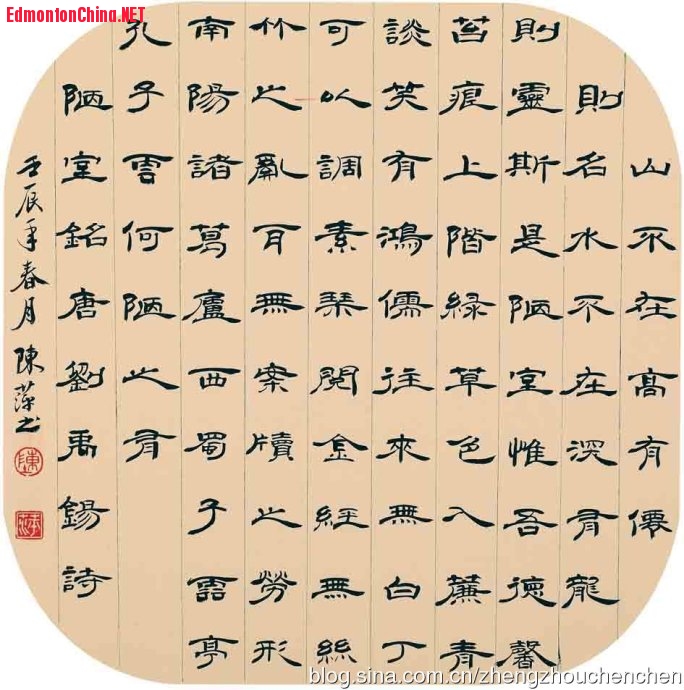 EdmontonChina.NET
山不在高有僊
則名水不在深有龍
則靈斯是陋室惟吾德馨
苔痕上階緑草色入簾青
談笑有鴻儒往來無白丁
可以調素琴閱金經無絲
竹之亂耳無案牘之勞形
南陽諸葛廬西蜀子雲亭
孔子雲何陋之有
陋室銘唐劉禹錫詩
壬辰年春月陳萍书
陳
萍
blog.sina.com.cn/zhengzhouchenchen